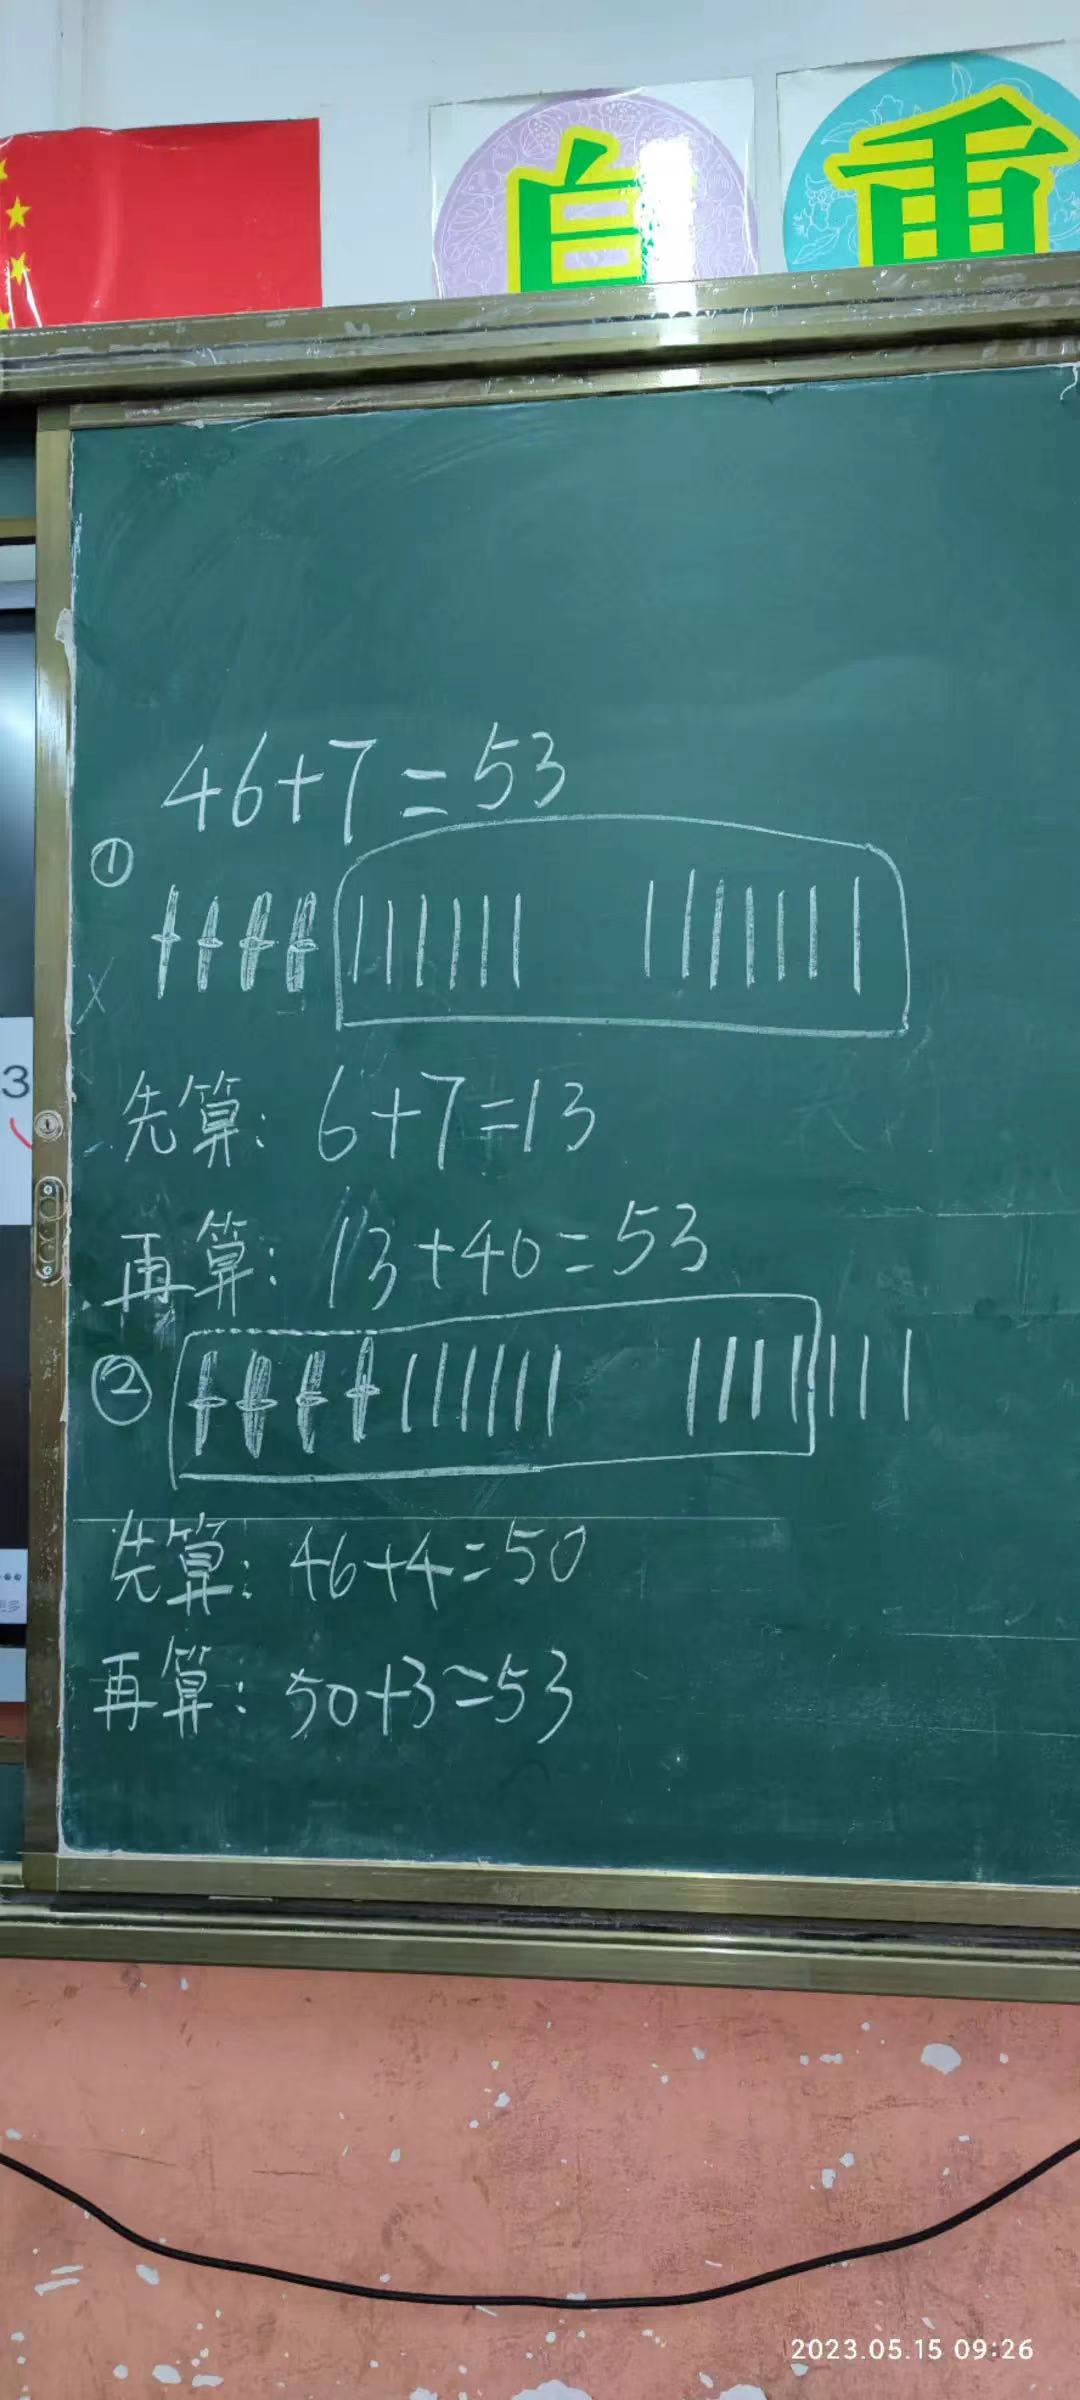 自重
46+7=53
①
先算: 6+7=13
再算: 13+40=53
②
先算: 46+4=50
再算: 50+3=53
3
2023.05.15 09:26